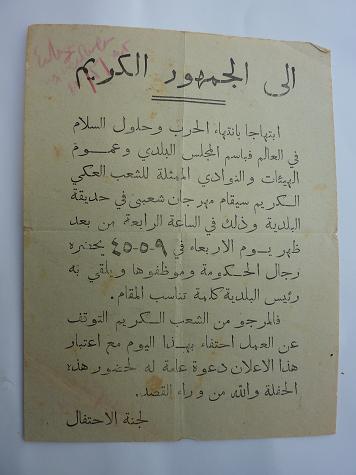 الى الجمهور الكريم
ابتهاجا بانتهاء الحرب وحلول السلام
في العالم فباسم المجلس البلدي وعموم
الهيئات والنوادي الممثلة للشعب العكي
الكريم سيقام مهرجان شعبي في حديقة
البلدية وذلك في الساعة الرابعة من بعد
ظهر يوم الاربعاء في ٩-٥-٤٥ يحضره
رجال الحكومة وموظفوها ويلقي به
رئيس البلدية كلمة تناسب المقام.
فالمرجو من الشعب الكريم التوقف
عن العمل احتفاء بهذا اليوم مع اعتبار
هذا الاعلان دعوة عامة له لحضور هذه
الحفلة والله من وراء القصد.
لجنة الاحتفال